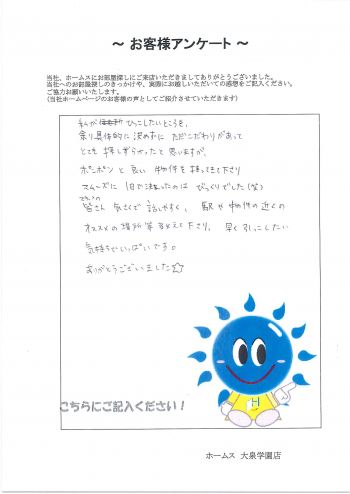 ～ お客様アンケート ～
当社、ホームスにお部屋探しにご来店いただきましてありがとうございました。
当社へのお部屋探しのきっかけや、実際にお越しいただいての感想をご記入ください。
ご協力お願いいたします。
（当社ホームページのお客様の声としてご紹介させていただきます）
私が ひっこしたいところを、
余り具体的に決めずに ただこだわりがあって
とても 探しずらかったと 思いますが、
ポンポンと 良い 物件を 持ってきて下さり
スムーズに 1日で決まったのは びっくりでした(笑)
スタッフの
皆さん 気さくで 話しやすく、 駅や 物件の 近くの
オススメの 場所等 教えて 下さり、 早く 引っこしたい
気持ちでいっぱいです。
ありがとうございました☆
H
こちらにご記入ください！
ホームス 大泉学園店